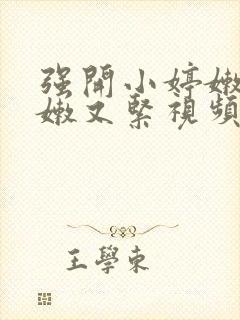 强開小婷嫩
嫩又緊視頻
王學東